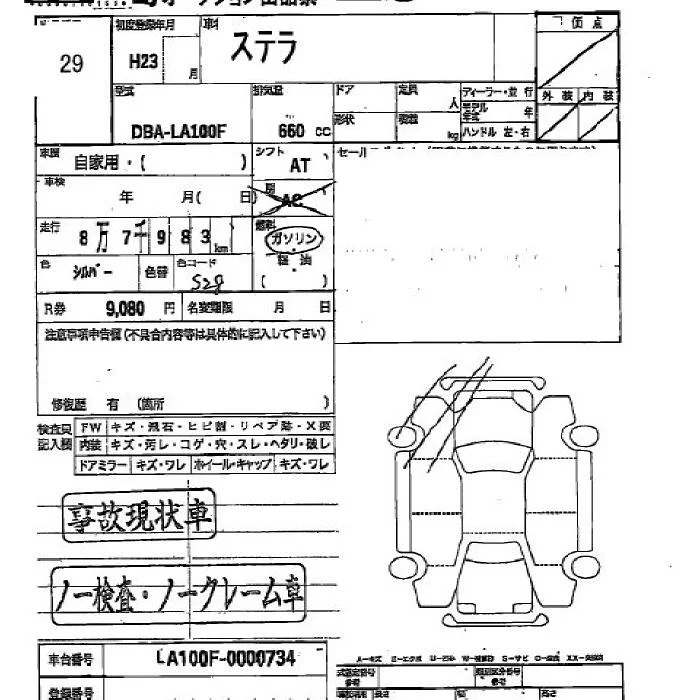 29
初度登録年月
H23 月
車名
ステラ
評価点
外装 内装
型式
DBA-LA100F
排気量
660 CC
ドア
形状
定員 人
積載 kg
ディーラー・並行
モデル年式 年
ハンドル 左・右
車歴
自家用・( )
シフト
AT
車検
年 月( 日)
AC
走行
8万7千983km
燃料
ガソリン
軽油
( )
色
シルバー
色替
色コード
S28
R券 9,080 円 名変期限 月 日
注意事項申告欄(不具合内容等は具体的に記入して下さい)
修復歴 有 (箇所 )
検査員記入欄
FW キズ・飛石・ヒビ割・リペア跡・X要
内装 キズ・汚レ・コゲ・穴・スレ・ヘタリ・破レ
ドアミラー キズ・ワレ ホイール・キャップ キズ・ワレ
事故現状車
ノー検査・ノークレーム車
車台番号 LA100F-0000734
登録番号